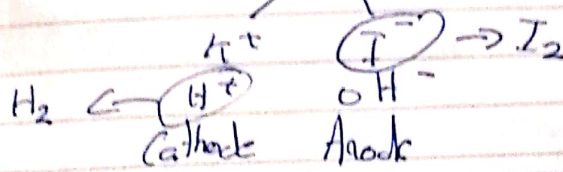 K+ I- → I2
H2 ← H+ OH-
Cathode Anode